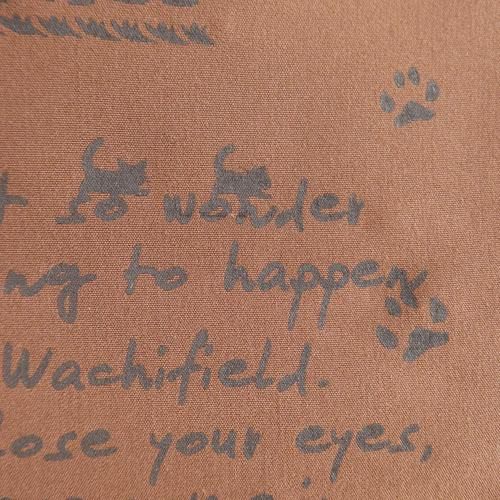 so wonder
ng to happen
Wachifield.
lose your eyes,